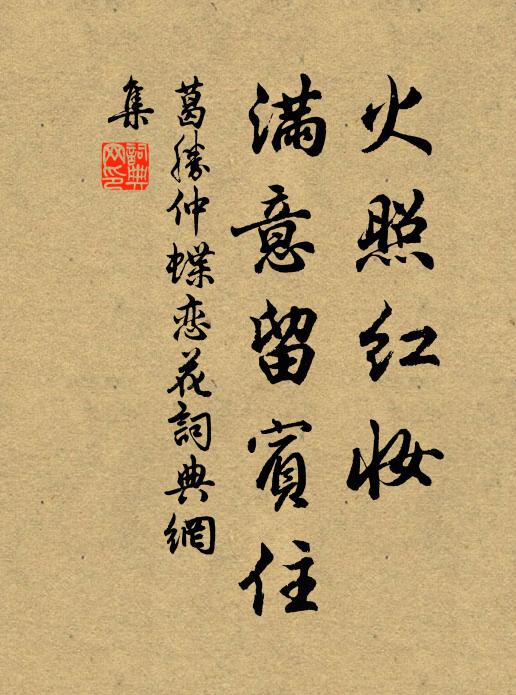 火照红妆
满意留賓住
葛胜仲蝶恋花詞典網
集
詞典网印